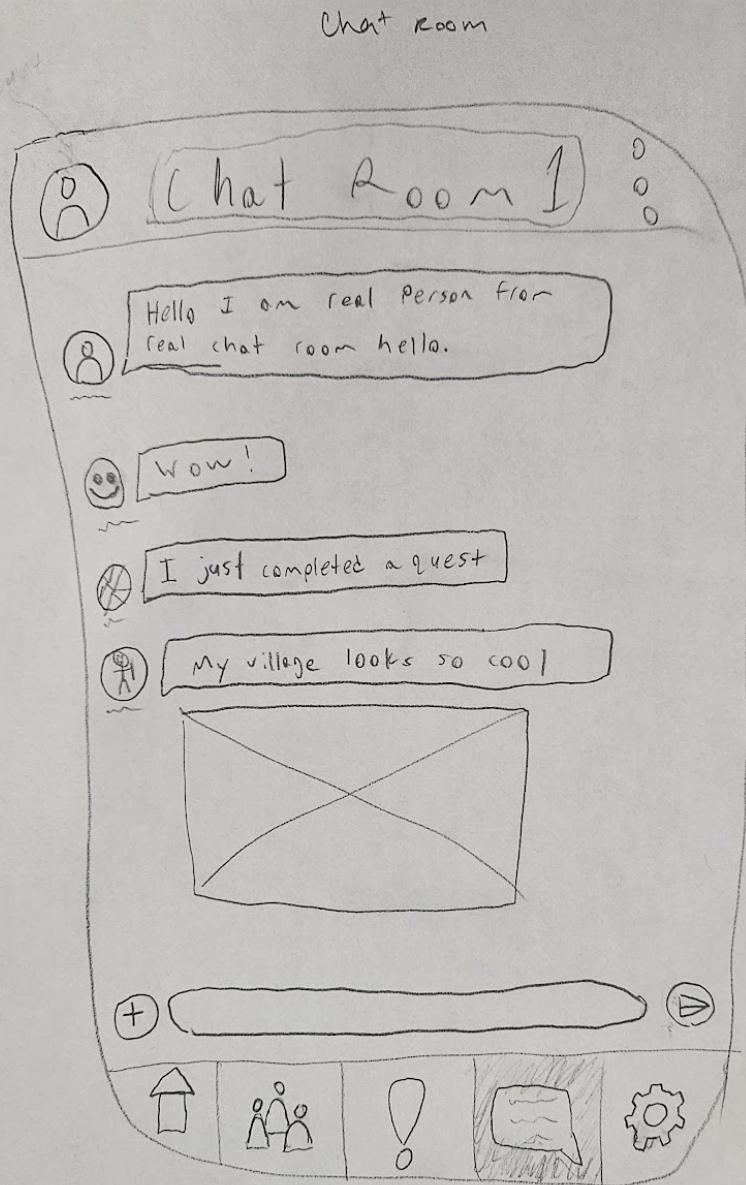 Chat Room
Chat Room 1
Hello I am real Person from
real chat room hello.
Wow!
I just completed a quest
My village looks so cool